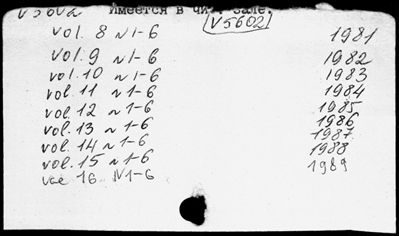 V5602 Имеется в чит. зале.
V5602
vol. 8 N1-6 1981
vol. 9 N1-6 1982
vol. 10 N1-6 1983
vol. 11 N1-6 1984
vol. 12 N1-6 1985
vol. 13 N1-6 1986
vol. 14 N1-6 1987
vol. 15 N1-6 1988
vol 16 N1-6 1989